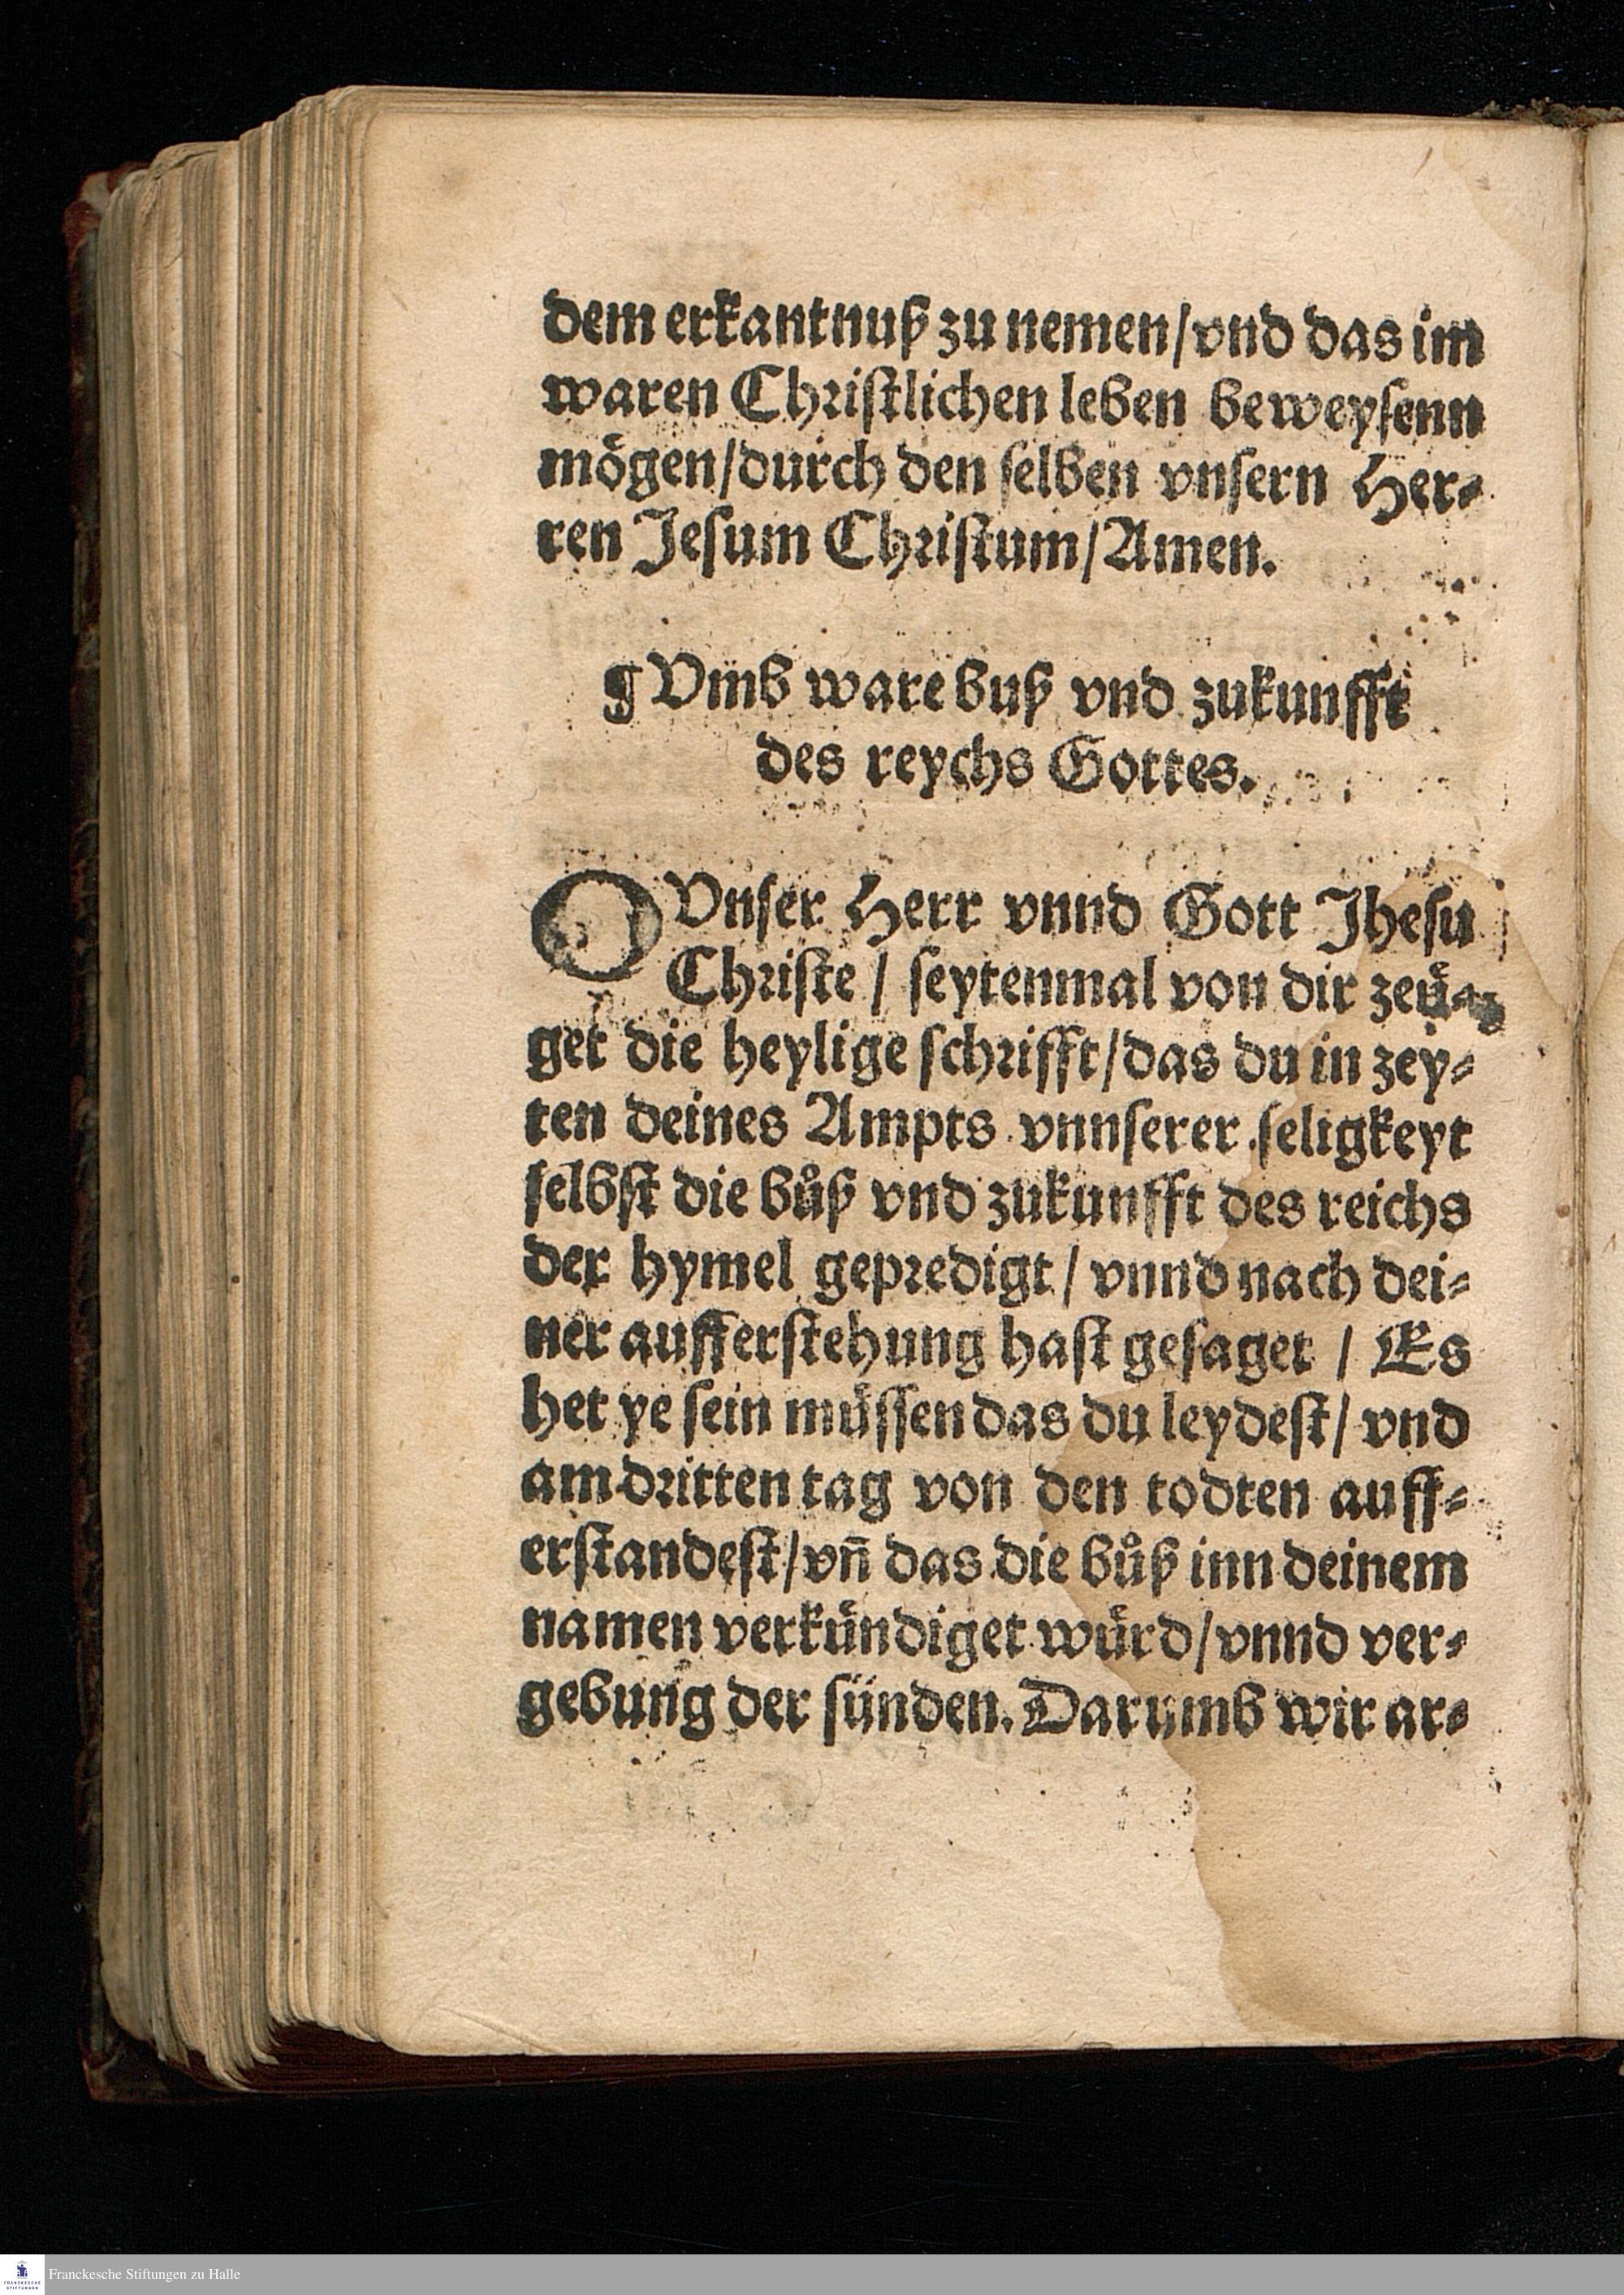 dem erkantnuß zu nemen/vnd das im
waren Christlichen leben beweysenn
mögen/durch den selben vnsern Her⸗
ren Jesum Christum/Amen.
¶ Vmb ware buß vnd zukunfft
des reychs Gottes.
O Vnser Herr vnnd Gott Jhesu
Christe / seytenmal von dir zeuͤ⸗
get die heylige schrifft/das du in zey⸗
ten deines Ampts vnnserer seligkeyt
selbst die buͦß vnd zukunfft des reichs
der hymel gepredigt / vnnd nach dei⸗
ner aufferstehung hast gesaget / Es
het ye sein muͤssen das du leydest/ vnd
am dritten tag von den todten auff⸗
erstandest/vn̄ das die buͦß inn deinem
namen verkuͤndiget wuͤrd/vnnd ver⸗
gebung der sünden. Darumb wir ar⸗
Franckesche Stiftungen zu Halle